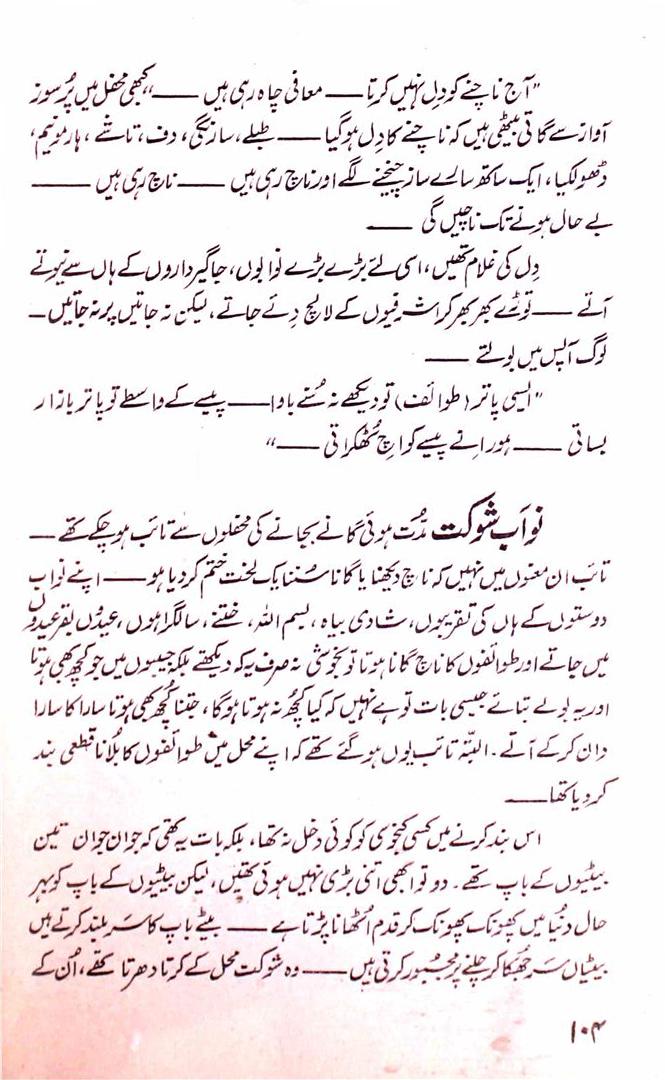 "آج ناچنے کو دِل نہیں کرتا — معافی چاہ رہی ہیں —" کبھی محفل میں پُرسوز
آواز سے گاتی بیٹھی ہیں کہ ناچنے کا دِل ہوگیا — طبلے، سارنگی، دف، تاشے، ہارمونیم،
ڈھولکیا، ایک ساتھ سارے ساز چیخنے لگے اور ناچ رہی ہیں — ناچ رہی ہیں —
بے حال ہونے تک ناچیں گی —
دِل کی غلام تھیں، اسی لئے بڑے بڑے نوابوں، جاگیرداروں کے ہاں سے نیوتے
آتے — توڑے بھر بھر کر اشرفیوں کے لالچ دِئے جاتے، لیکن نہ جاتیں پر نہ جاتیں —
لوگ آپس میں بولتے —
"ایسی پاتر (طوائف) تو دیکھے نہ سُنے باوا — پیسے کے واسطے تو پاتر بازار
بساتی — ہور اِنے پیسے کو اِچ ٹھکراتی —"
نواب شوکت مدّت ہوئی گانے بجانے کی محفلوں سے تائب ہو چکے تھے —
تائب ان معنوں میں نہیں کہ ناچ دیکھنا یا گانا سننا یک لخت ختم کر دیا ہو — اپنے نواب
دوستوں کے ہاں کی تقریبوں، شادی بیاہ، بسم اللہ، ختنے، سالگراہوں، عیدوں بقرعیدوں
میں جاتے اور طوائفوں کا ناچ گانا ہوتا تو بخوشی نہ صرف یہ کہ دیکھتے بلکہ جیبوں میں جو کچھ بھی ہوتا
اور یہ بولے بتائے جیسی بات تو ہے نہیں کہ کیا کچھ نہ ہوتا ہوگا، جتنا کچھ بھی ہوتا سارا کا سارا
دان کر کے آتے۔ البتّہ تائب یوں ہو گئے تھے کہ اپنے محل میں طوائفوں کا بُلانا قطعی بند
کر دیا تھا —
اس بند کرنے میں کسی کنجوسی کو کوئی دخل نہ تھا، بلکہ بات یہ تھی کہ جوان جوان تین
بیٹیوں کے باپ تھے۔ دو تو ابھی اتنی بڑی نہیں ہوئی تھیں، لیکن بیٹیوں کے باپ کو بہر
حال دُنیا میں پھونک پھونک کر قدم اُٹھانا پڑتا ہے — بیٹے باپ کا سَر بلند کرتے ہیں
بیٹیاں سَر جھکا کر چلنے پر مجبور کرتی ہیں — وہ شوکت محل کے کرتا دھرتا تھے، اُن کے
۱۰۴